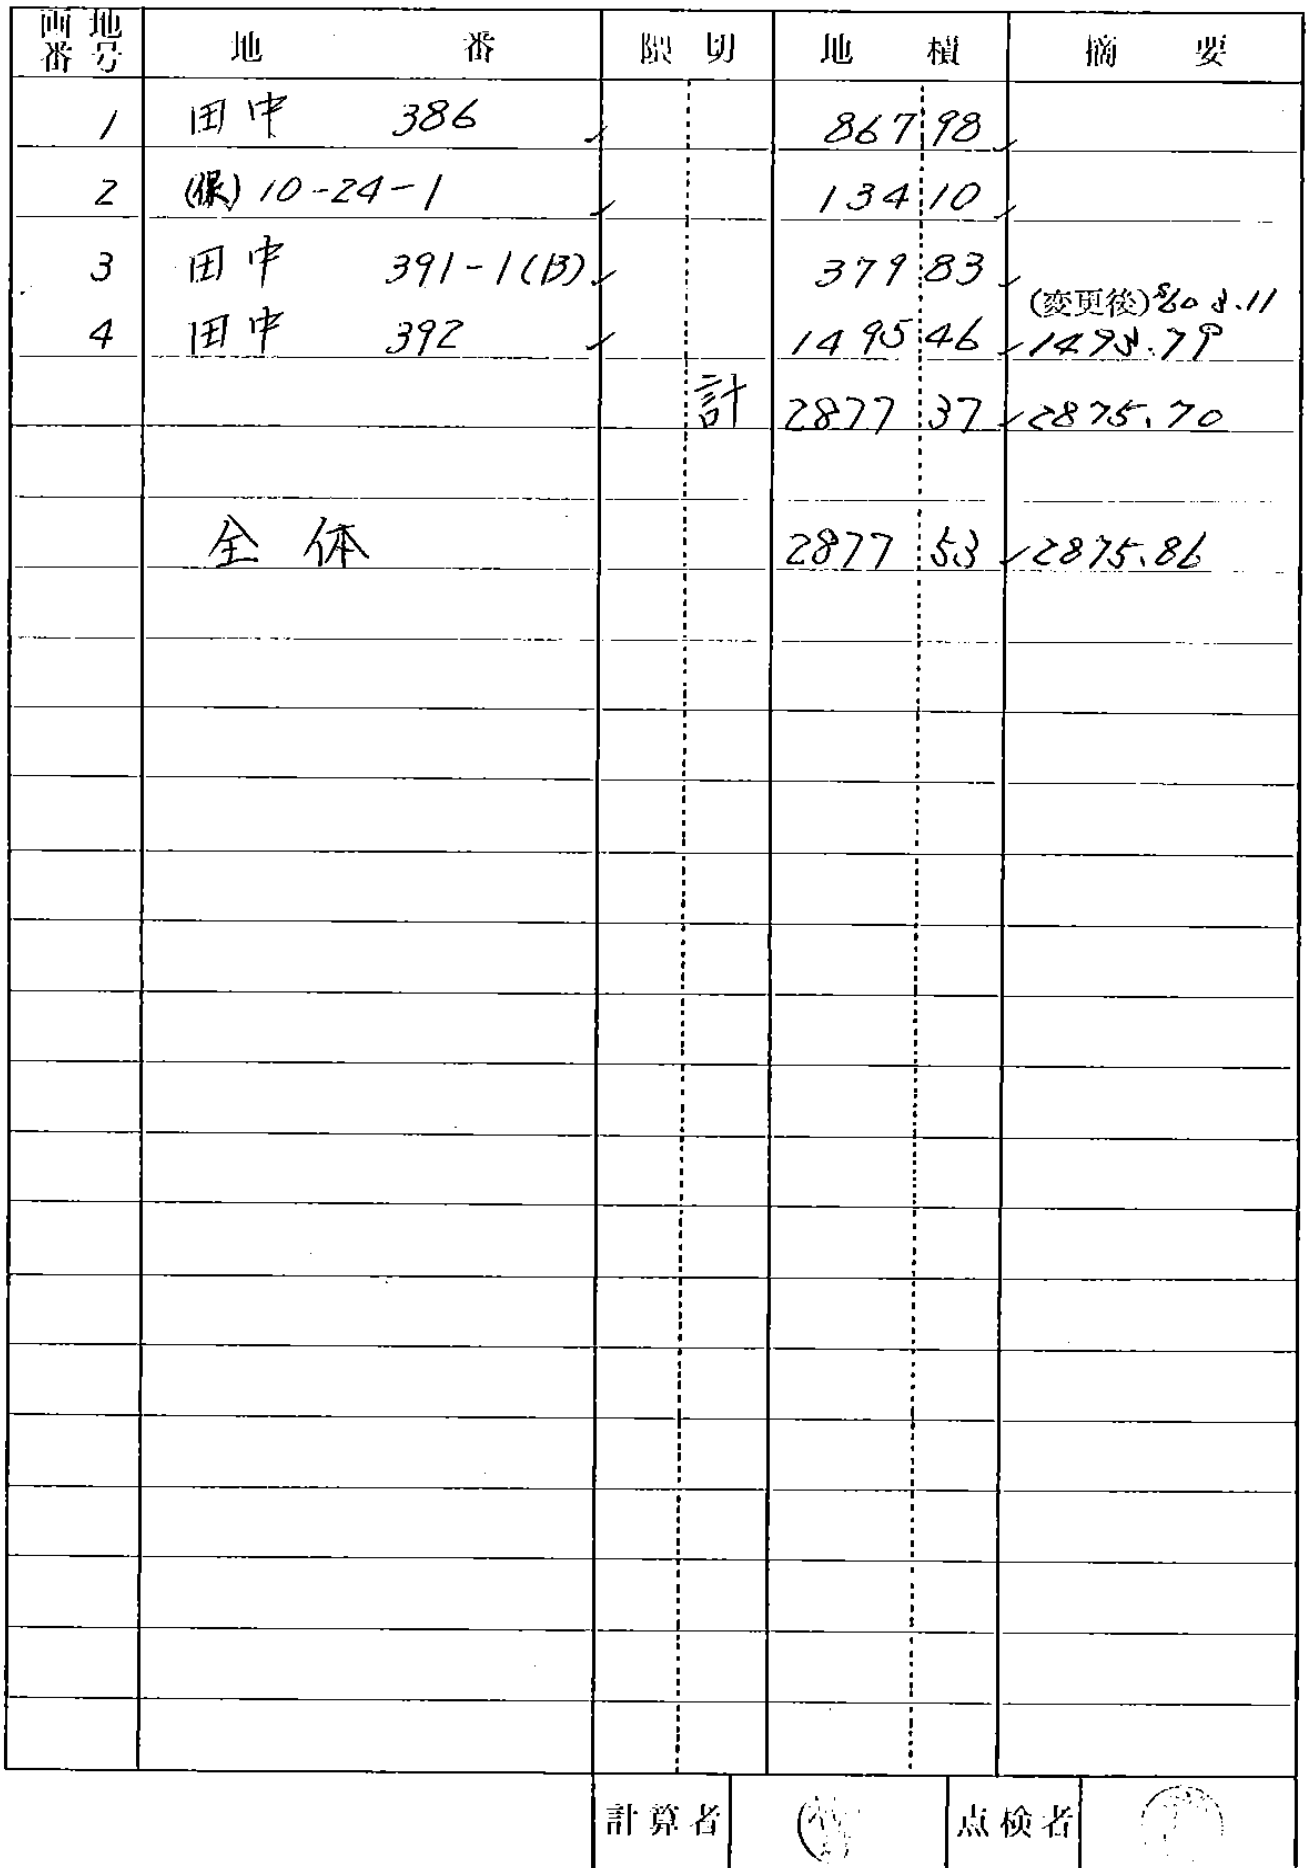 画地番号 地番 隅切 地積 摘要
1 田中 386 867 98
2 (保) 10-24-1 134 10
3 田中 391-1(B) 379 83
(変更後) S60.8.11
4 田中 392 1495 46 1493.79
計 2877 37 2875.70
全体 2877 53 2875.86
計算者 点検者